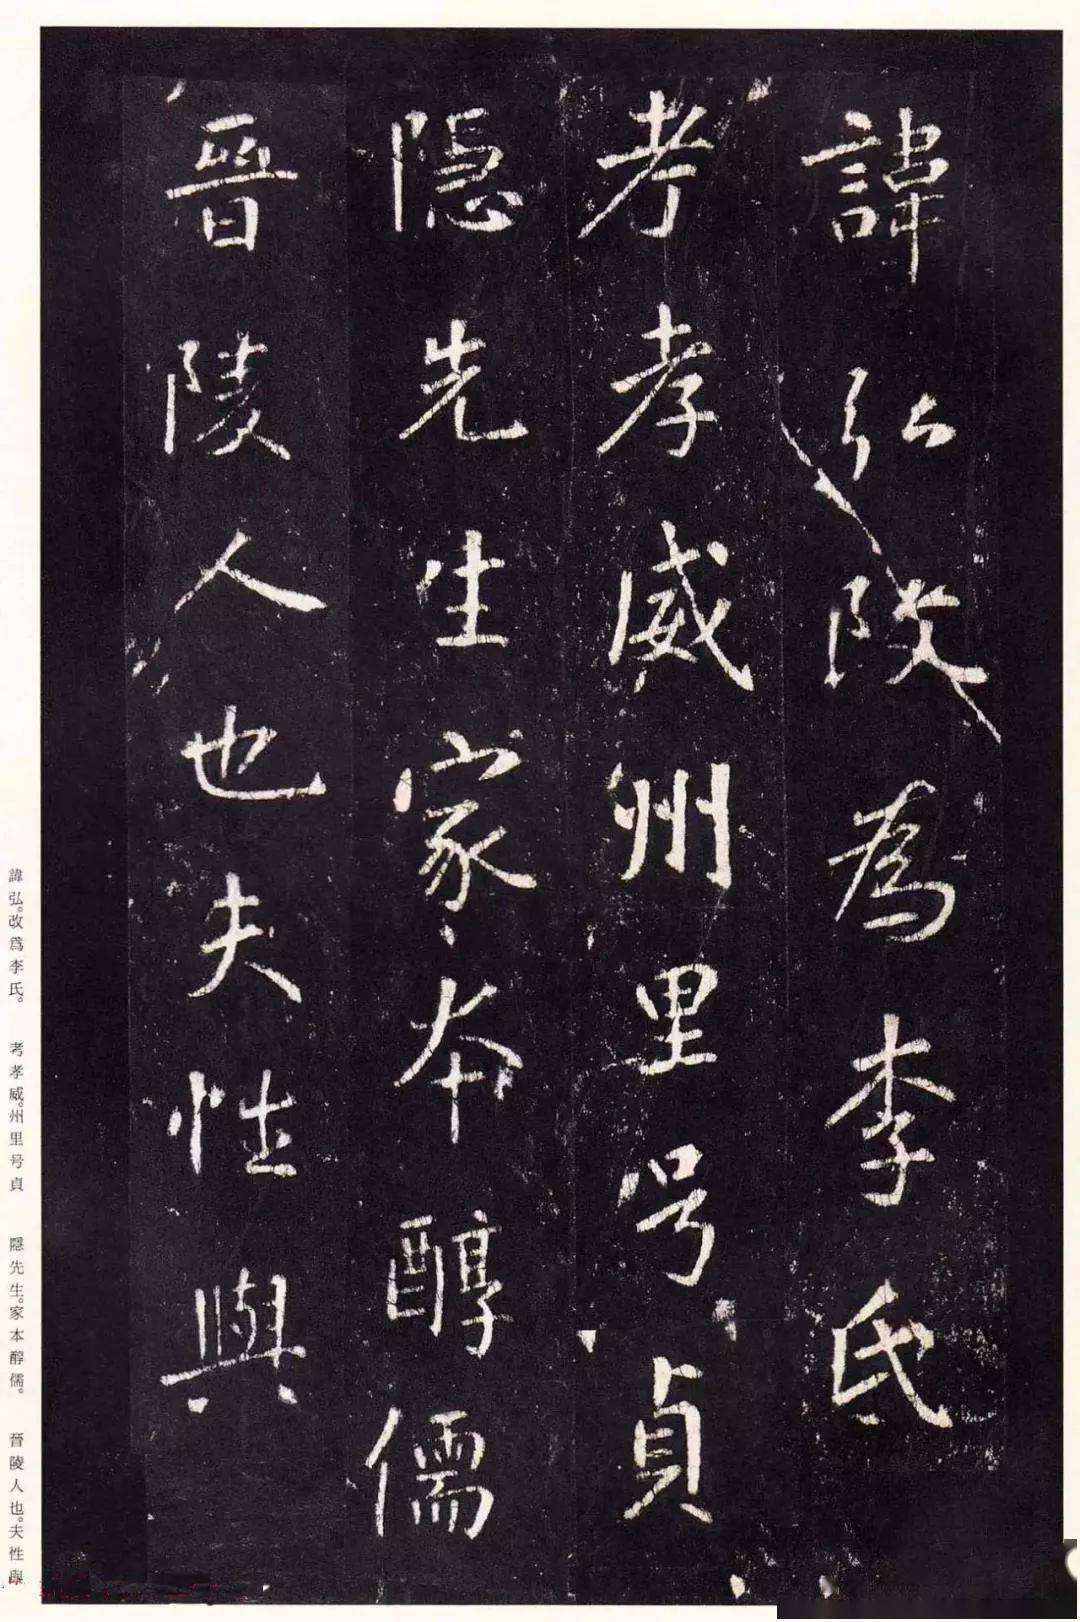 諱弘改為李氏
考孝威州里号貞
隱先生家本醇儒
晉陵人也夫性與
諱弘。改爲李氏。 考孝威。州里号貞 隱先生。家本醇儒。 晉陵人也。夫性與